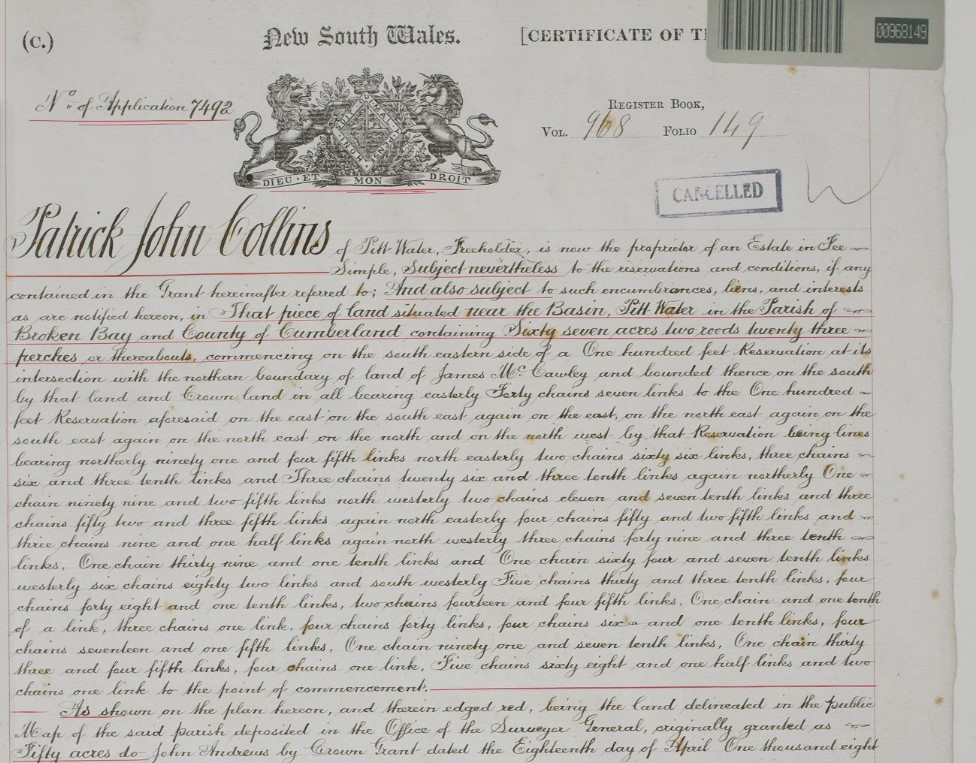 (C.)
New South Wales.
[CERTIFICATE OF TI
00968149
No. of Application 7492
REGISTER BOOK,
VOL. 968 FOLIO 149
DIEU · ET MON DROIT
CANCELLED
Patrick John Collins of Pitt Water, Freeholder, is now the proprietor of an Estate in Fee
Simple, Subject nevertheless to the reservations and conditions, if any
contained in the Grant hereinafter referred to; And also subject to such encumbrances, liens, and interests
as are notified hereon, in That piece of land situated near the Basin, Pitt Water in the Parish of
Broken Bay and County of Cumberland containing Sixty seven acres two roods twenty three
perches or thereabouts, commencing on the south eastern side of a One hundred feet Reservation at its
intersection with the northern boundary of land of James Mc. Cawley and bounded thence on the south
by that land and Crown land in all bearing easterly Forty chains seven links to the One hundred
feet Reservation aforesaid on the east on the south east again on the east, on the north east again on the
south east again on the north east on the north and on the north west by that Reservation being lines
bearing northerly ninety one and four fifth links north easterly two chains sixty six links, three chains
six and three tenth links and Three chains twenty six and three tenth links again northerly One
chain ninety nine and two fifth links north westerly two chains eleven and seven tenth links and three
chains fifty two and three fifth links again north easterly four chains fifty and two fifth links and
three chains nine and one half links again north westerly three chains forty nine and three tenth
links, One chain thirty nine and one tenth links and One chain sixty four and seven tenth links
westerly six chains eighty two links and south westerly Five chains thirty and three tenth links, four
chains forty eight and one tenth links, two chains fourteen and four fifth links, One chain and one tenth
of a link, three chains one link, four chains forty links, four chains six and one tenth links, four
chains seventeen and one fifth links, One chain ninety one and seven tenth links, One chain thirty
three and four fifth links, four chains one link, Five chains sixty eight and one half links and two
chains one link to the point of commencement.
As shown on the plan hereon, and therein edged red, being the land delineated in the public
Map of the said Parish deposited in the Office of the Surveyor General, originally granted as
Fifty acres do John Andrews by Crown Grant dated the Eighteenth day of April One thousand eight